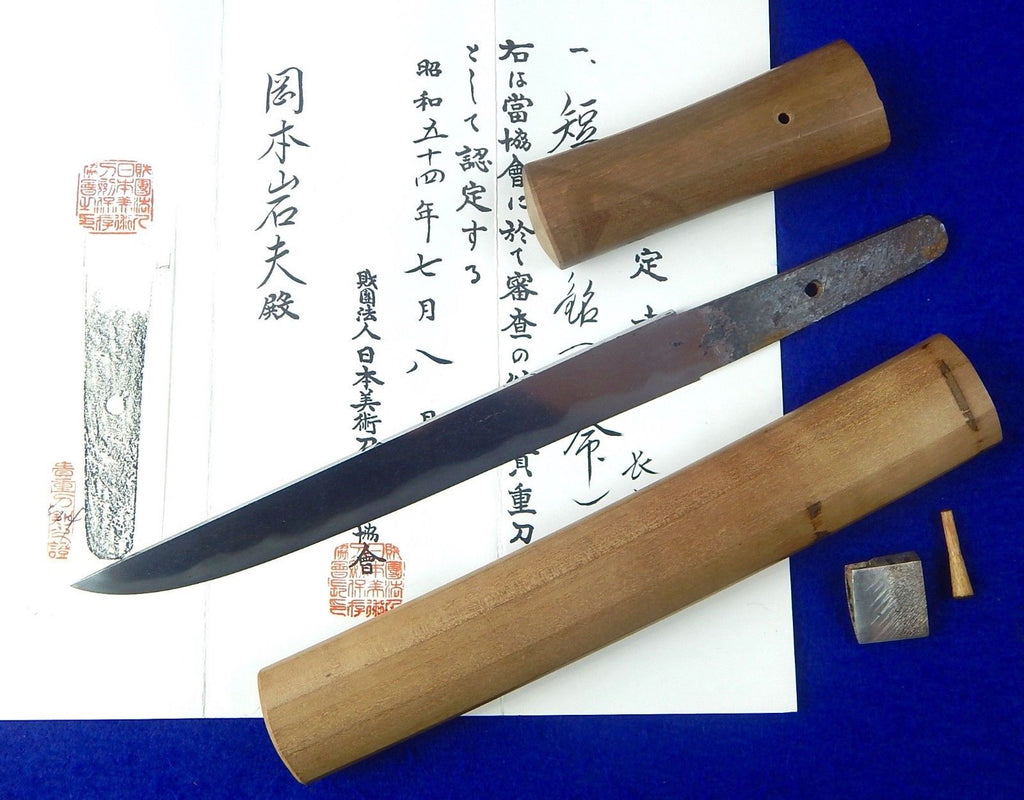 一、短
銘(
命)
定
長
右は當協會に於て審査の
貴重刀
として認定する
昭和五十四年七月八
財團法人日本美術刀
協會
岡本岩夫殿
財團法人
日本美術
刀剣保存
協會之印
財團法人
日本美術
刀剣保存
協會長印